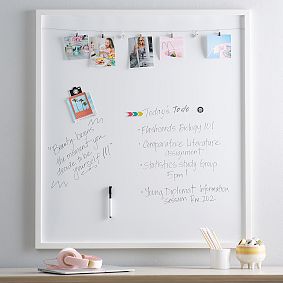 Today's Todo
• Flashcards Biology 101
• Comparative Literature
assignment
• Statistics Study Group
5pm
• Young Diplomat Information
Session Rm 202
"Beauty begins
the moment you
decide to be
yourself!!!"